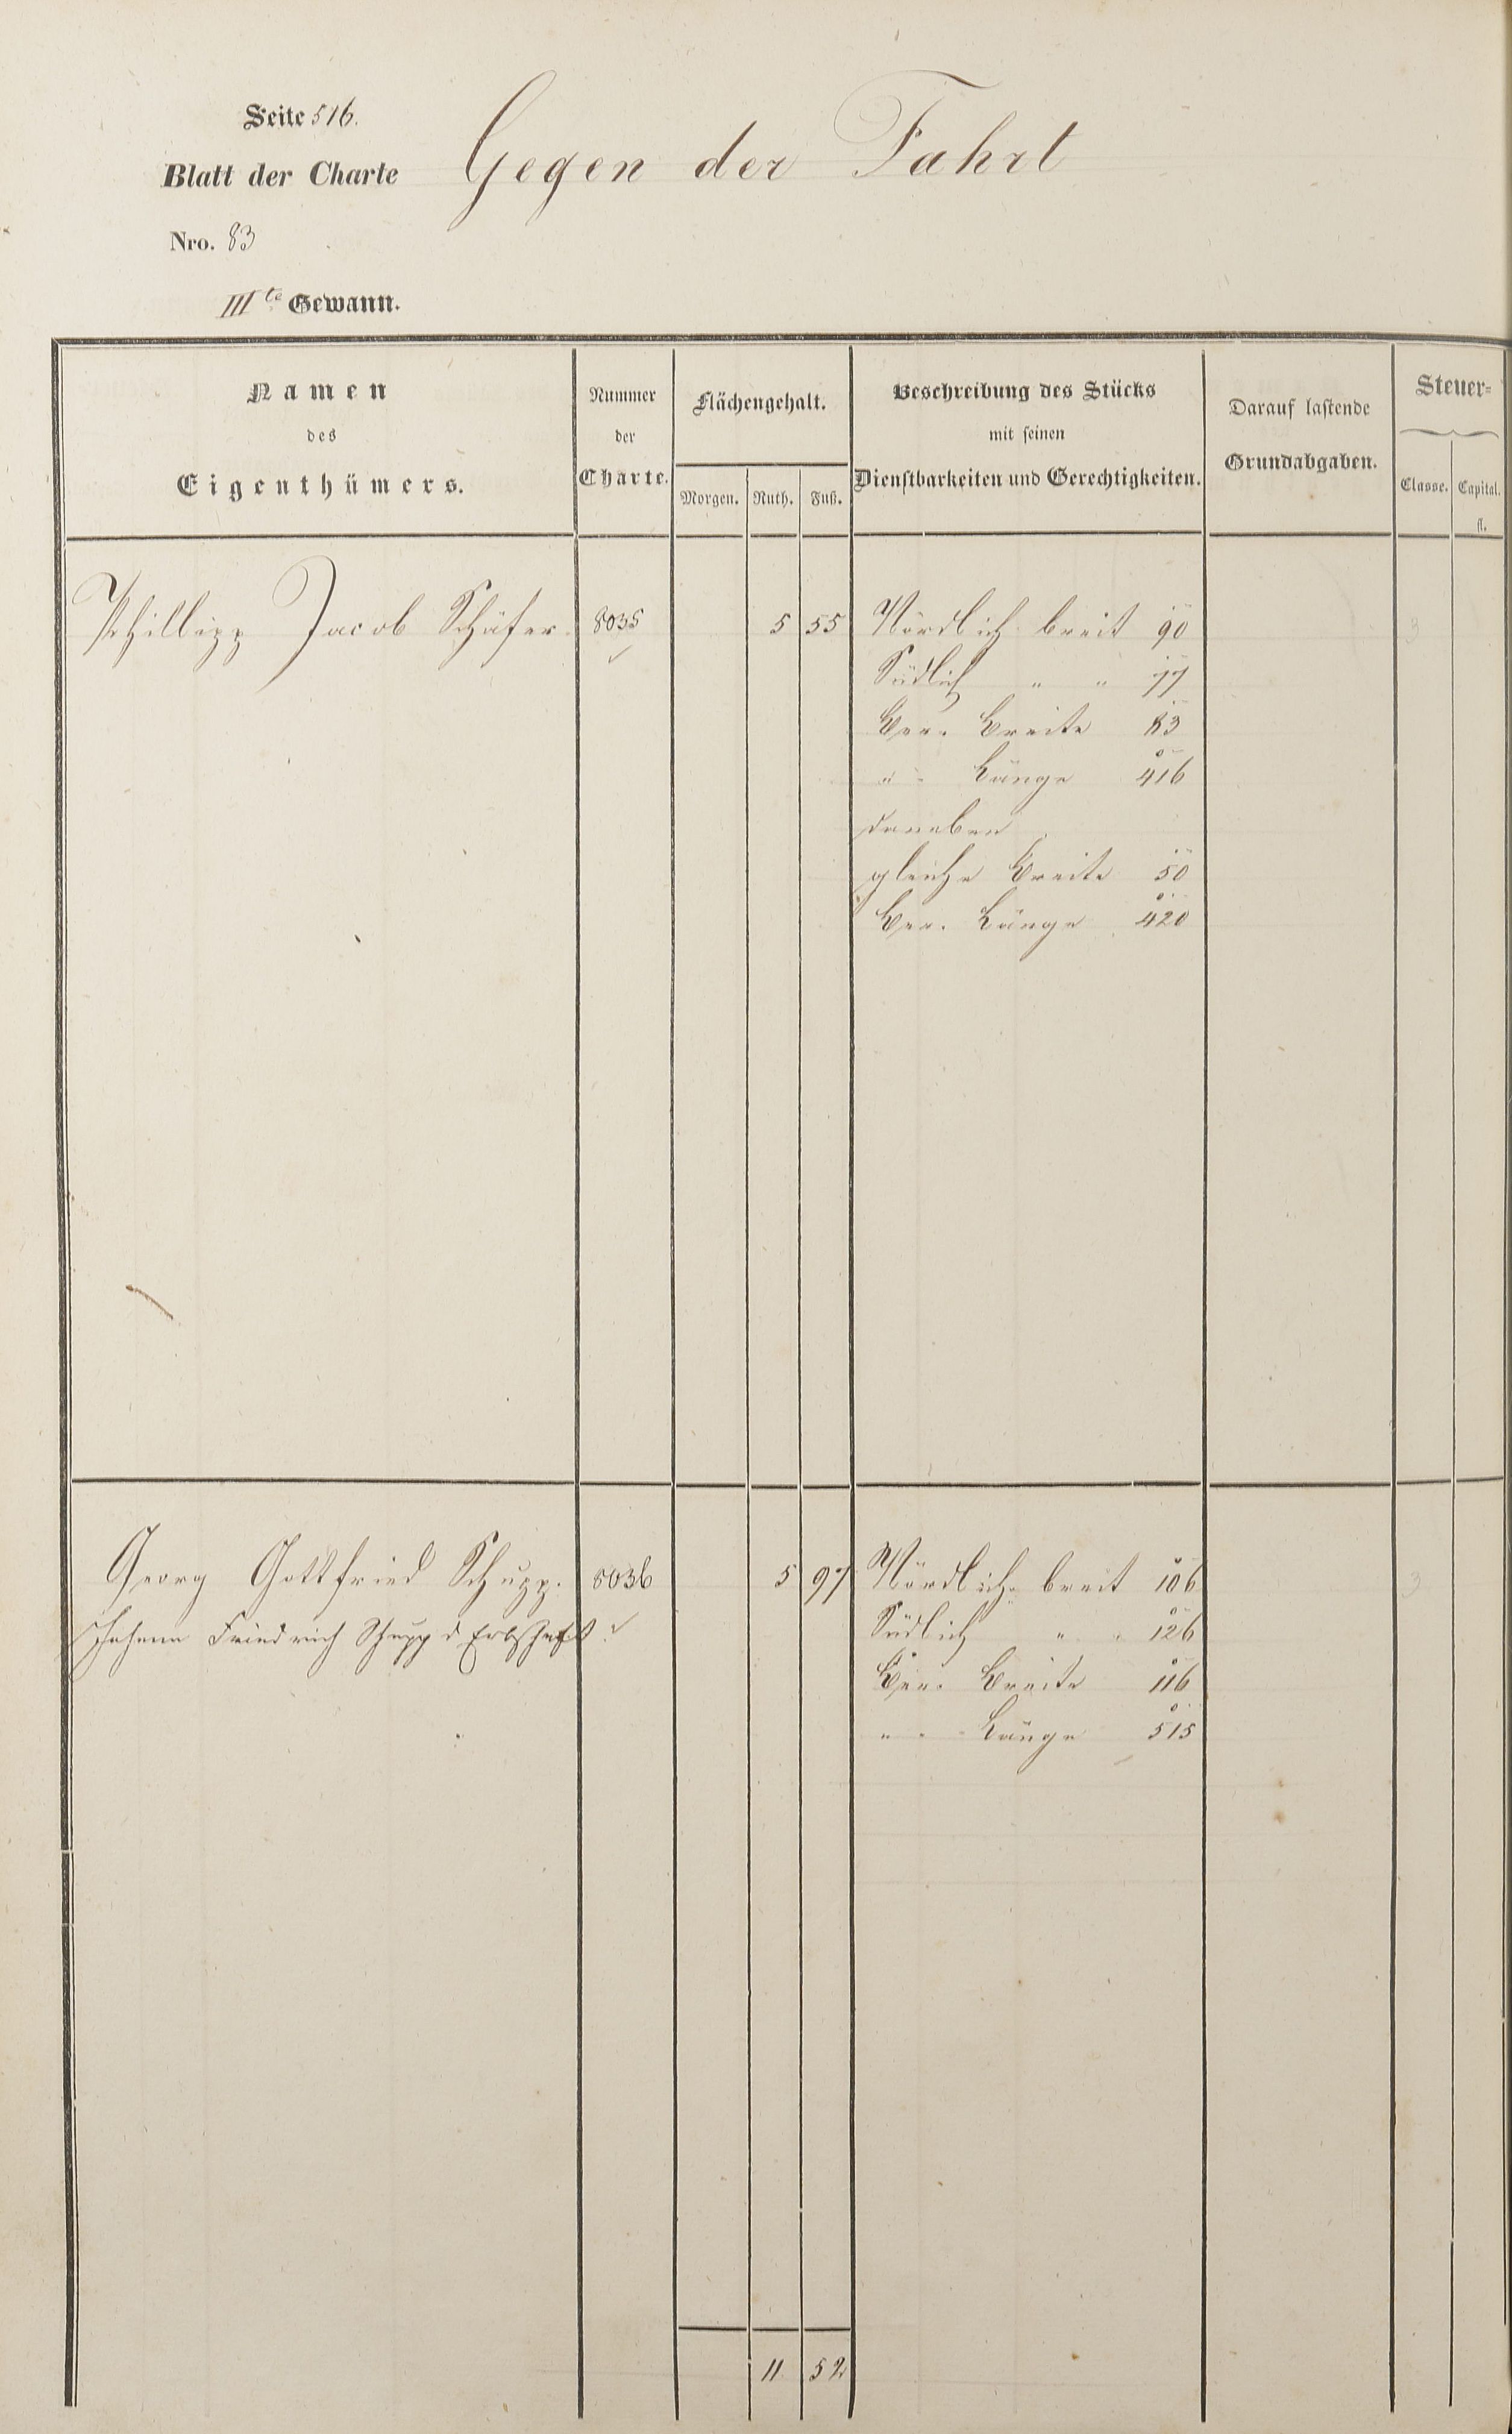 Seite 516.
Blatt der Charte Gegen der Fahrt
Nro. 83
IIIte Gewann.
Namen des Eigenthümers.
Nummer der Charte.
Flächengehalt.
Morgen. Ruth. Fuß.
Beschreibung des Stücks mit seinen Dienstbarkeiten und Gerechtigkeiten.
Darauf lastende Grundabgaben.
Steuer-
Classe. Capital.
fl.
Phillipp Jacob Schäfer. 8035 5 55 Nördlich breit 90 3
Südlich " " 77
Ber. Breite 83
" - Länge 416
daneben
gleiche Breite 50
Ber. Länge 420
Georg Gottfried Schupp. 8036 5 97 Nördlich breit 106 3
Johann Friedrich Schupp d Erbschaft Südlich " " 126
Ber. Breite 116
" - Länge 515
11 52